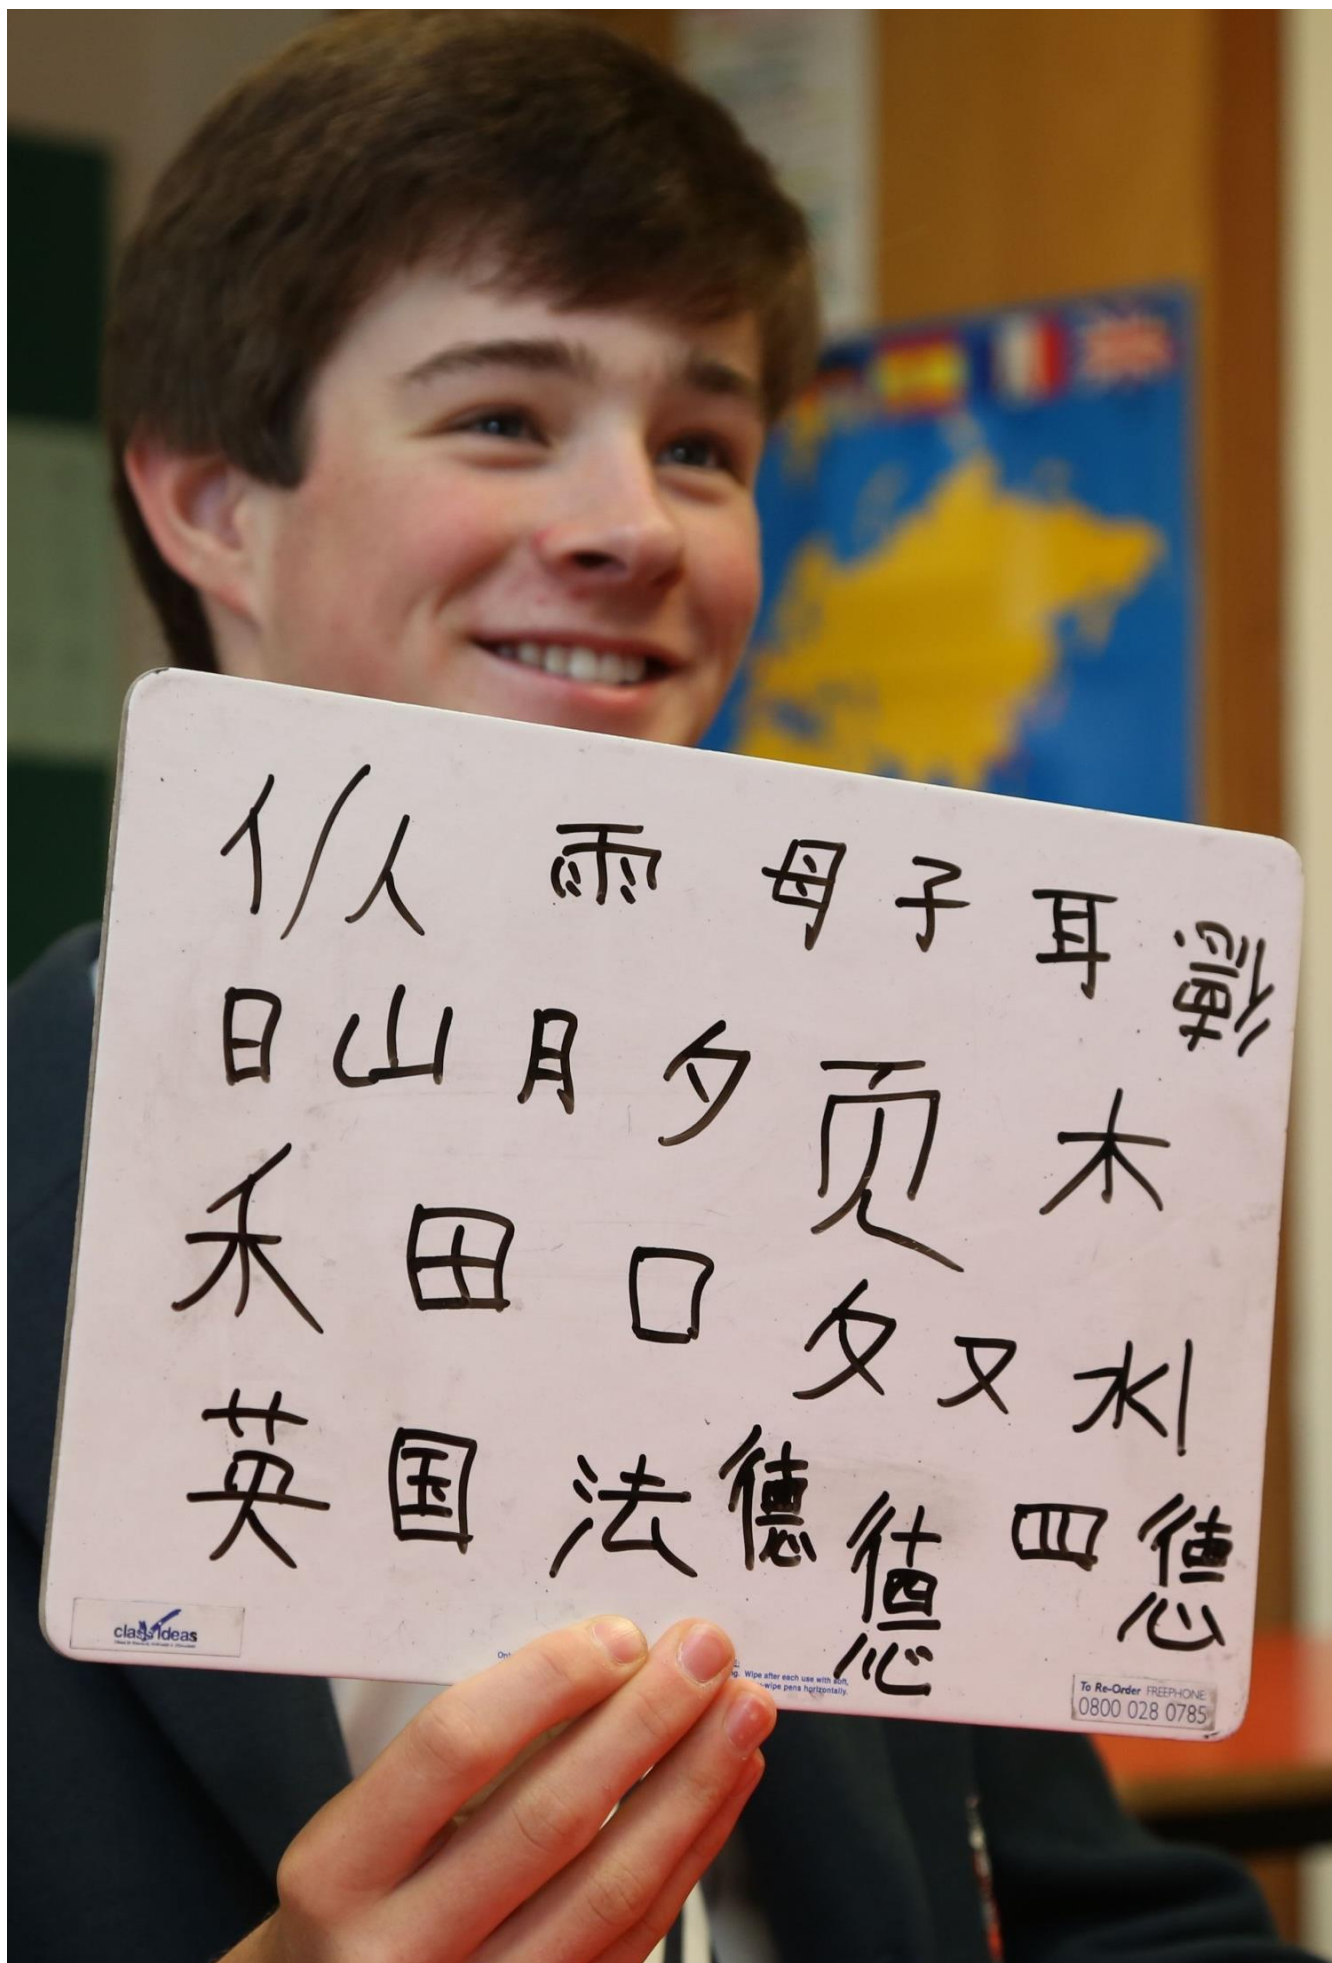 亻 人 雨 母 子 耳
日 山 月 夕 页 木
禾 田 口 夂 又 水
英 国 法 德 德 四 德
class ideas
Wipe after each use with soft,
wipe pens horizontally.
To Re-Order FREEPHONE
0800 028 0785